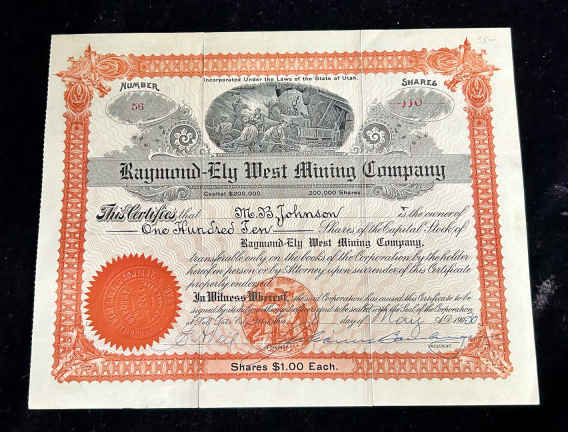 Incorporated Under the Laws of the State of Utah.
NUMBER
SHARES
56
110
Raymond-Ely West Mining Company
Capital $200,000
200,000 Shares.
This Certifies that M. B. Johnson is the owner of
One Hundred Ten Shares of the Capital Stock of
Raymond-Ely West Mining Company,
transferable only on the books of the Corporation by the holder
hereof in person or by Attorney upon surrender of this Certificate
properly endorsed.
In Witness Whereof, the said Corporation has caused this Certificate to be
signed by its duly authorized officers and to be sealed with the Seal of the Corporation
at Salt Lake City, Utah this day of May
PRESIDENT
Shares $1.00 Each.